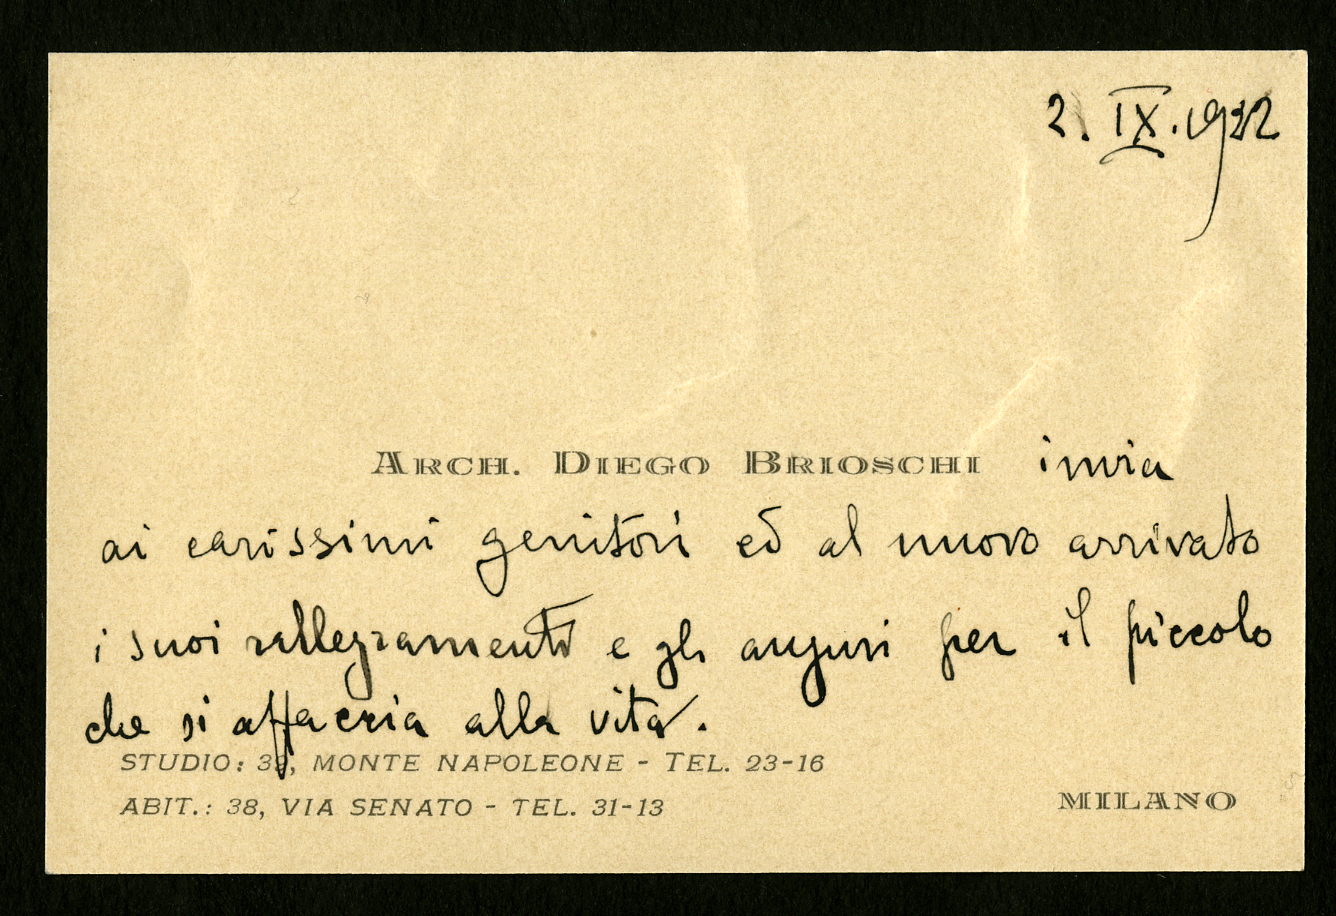 2. IX. 1922
ARCH. DIEGO BRIOSCHI invia
ai carissimi genitori ed al nuovo arrivato
i suoi rallegramenti e gli auguri per il piccolo
che si affaccia alla vita.
STUDIO: MONTE NAPOLEONE - TEL. 23-16
ABIT.: 38, VIA SENATO - TEL. 31-13
MILANO